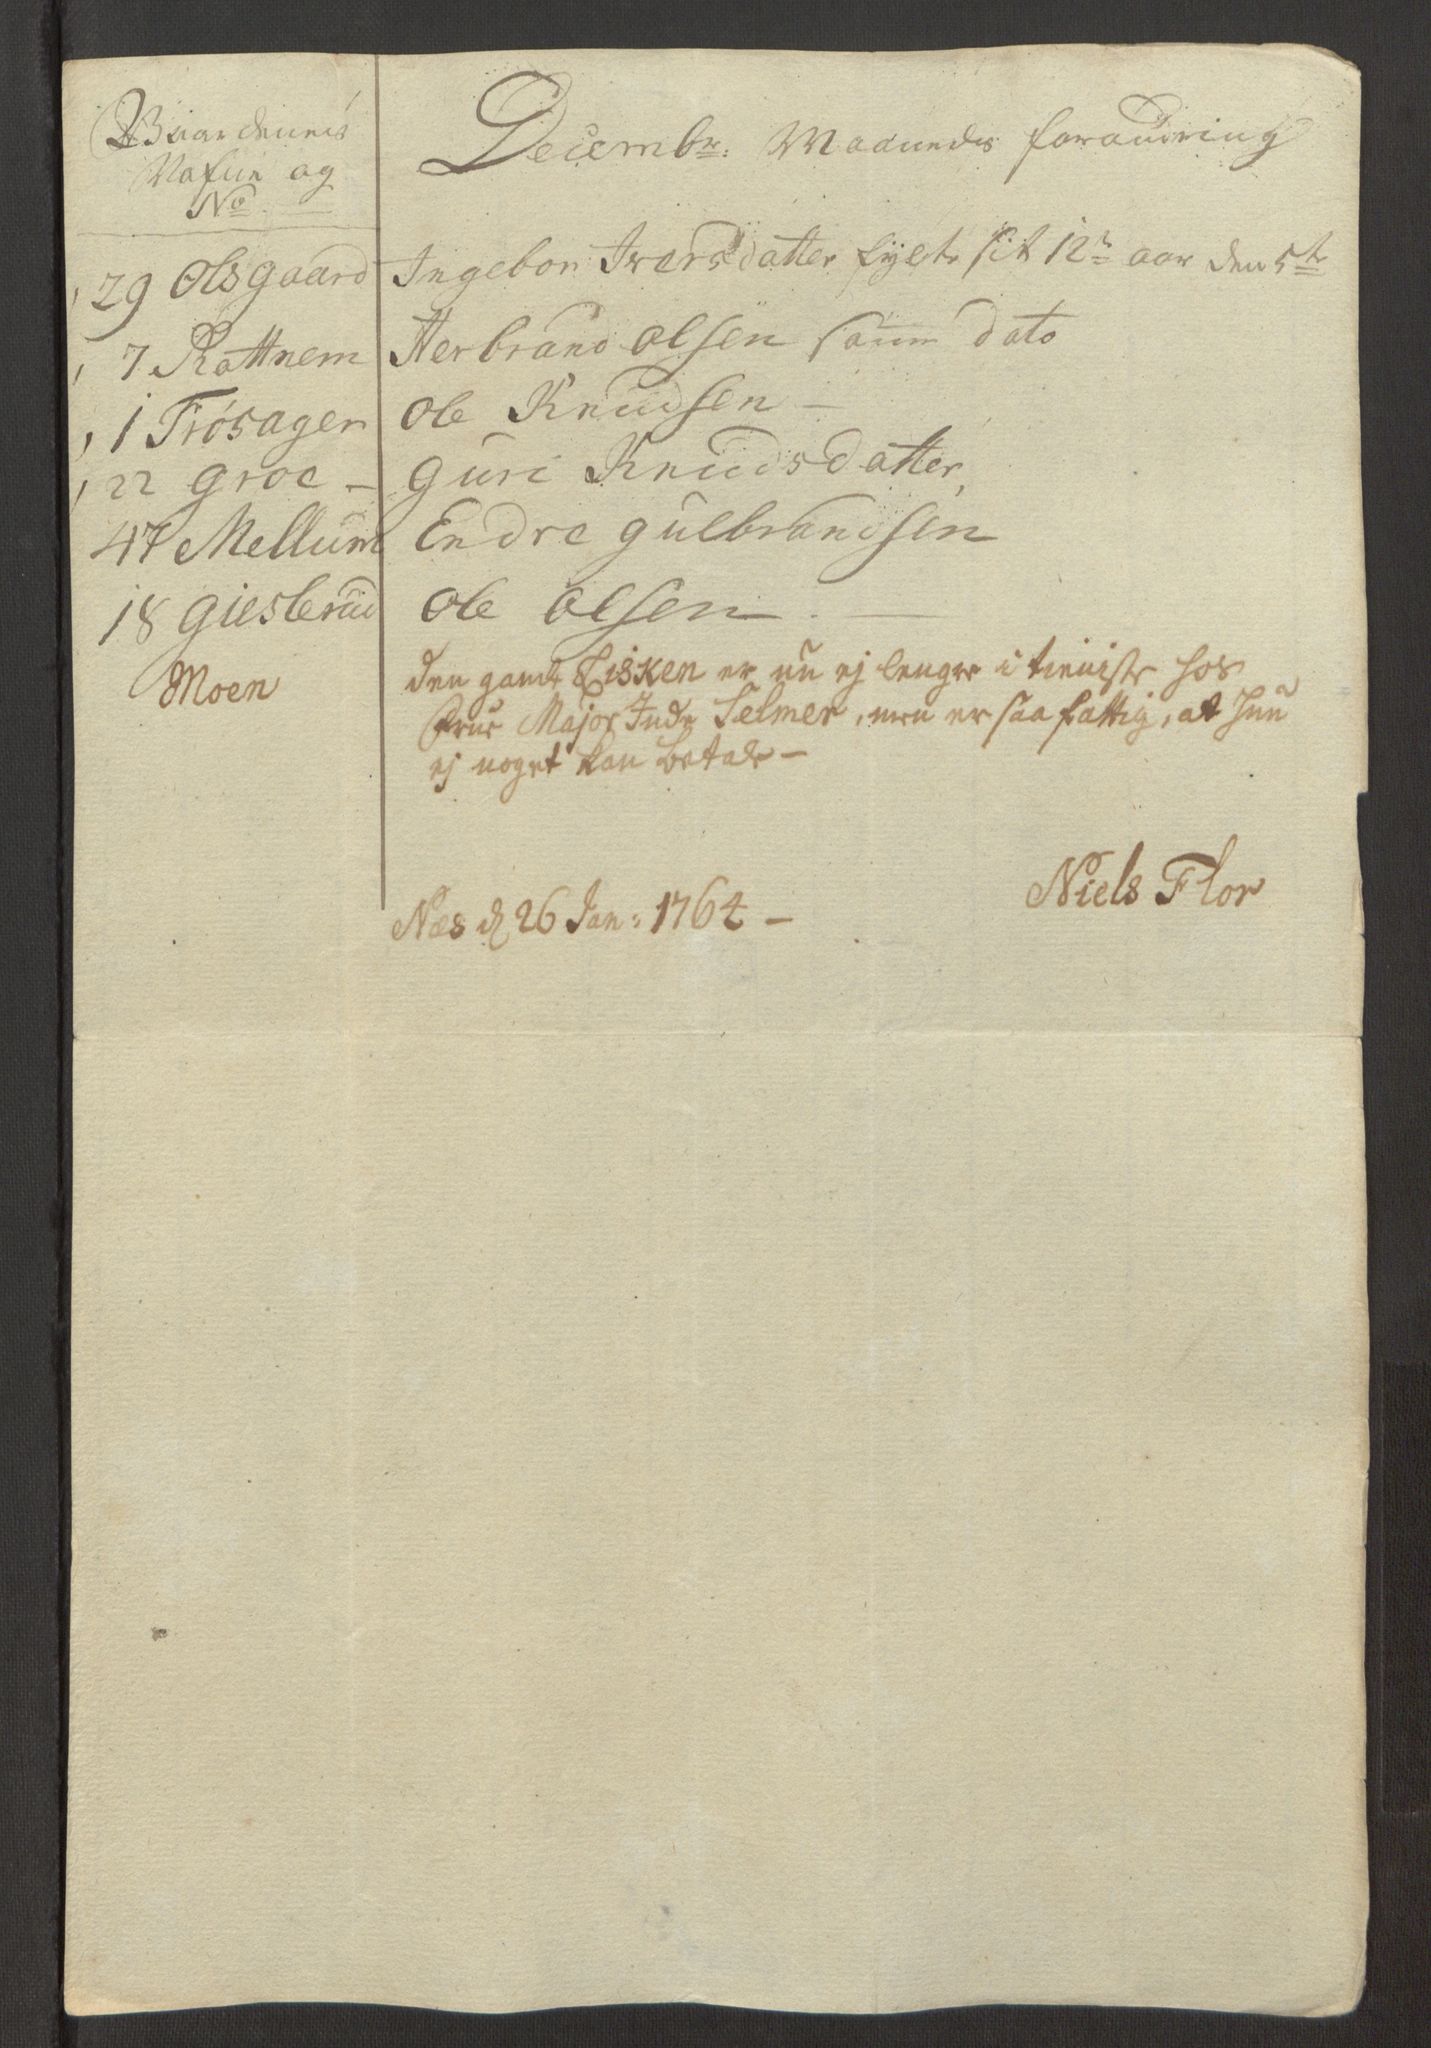 Gaardenes
Nafne og
No
Decembr: Maaneds forandring
29 Olsgaard Ingebor Iversdatter fylte sit 12te aar den 5te
7 Rattnem Herbrand Olsen samme dato
1 Frøsager Ole Knudsen –
22 Groe – Guri Knudsdatter,
47 Mellum Endre Gulbrandsen
18 Giesbrud Ole Olsen . —
Moen den gamle Lisken er nu ej lengre i tieniste hos
Frue Major Selmer, men er saa fattig, at hun
ej noget kan betale –
Niels Flor
Næs d 26 Jan: 1764 –